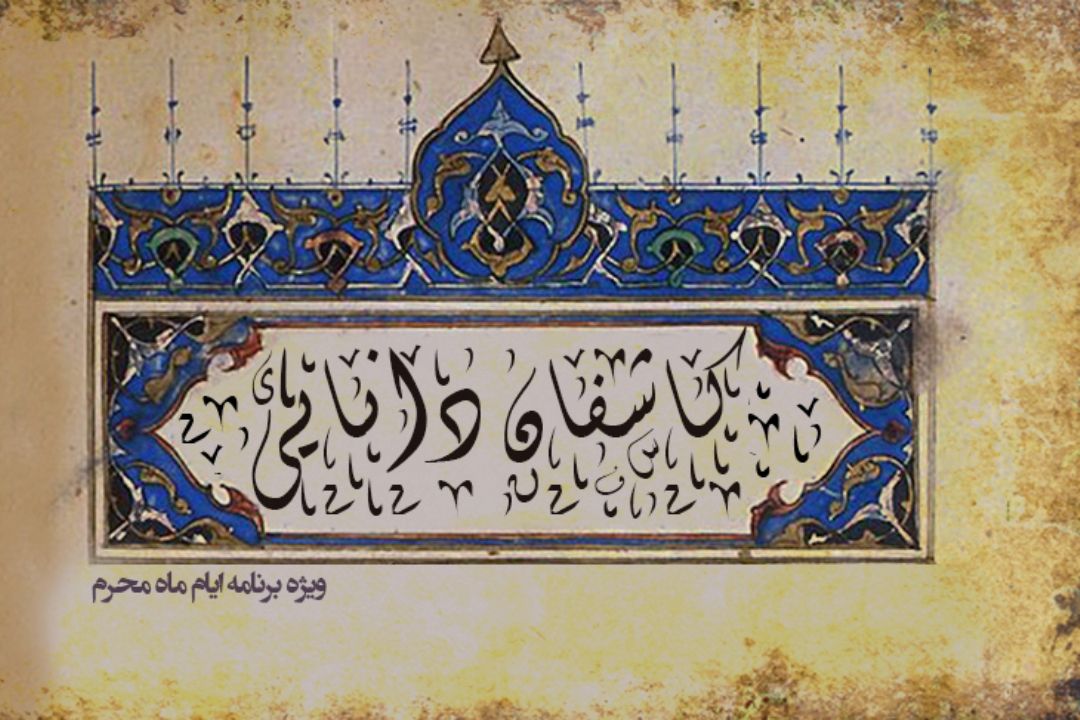 کاشفان دانایی
ویژه برنامه ایام ماه محرم